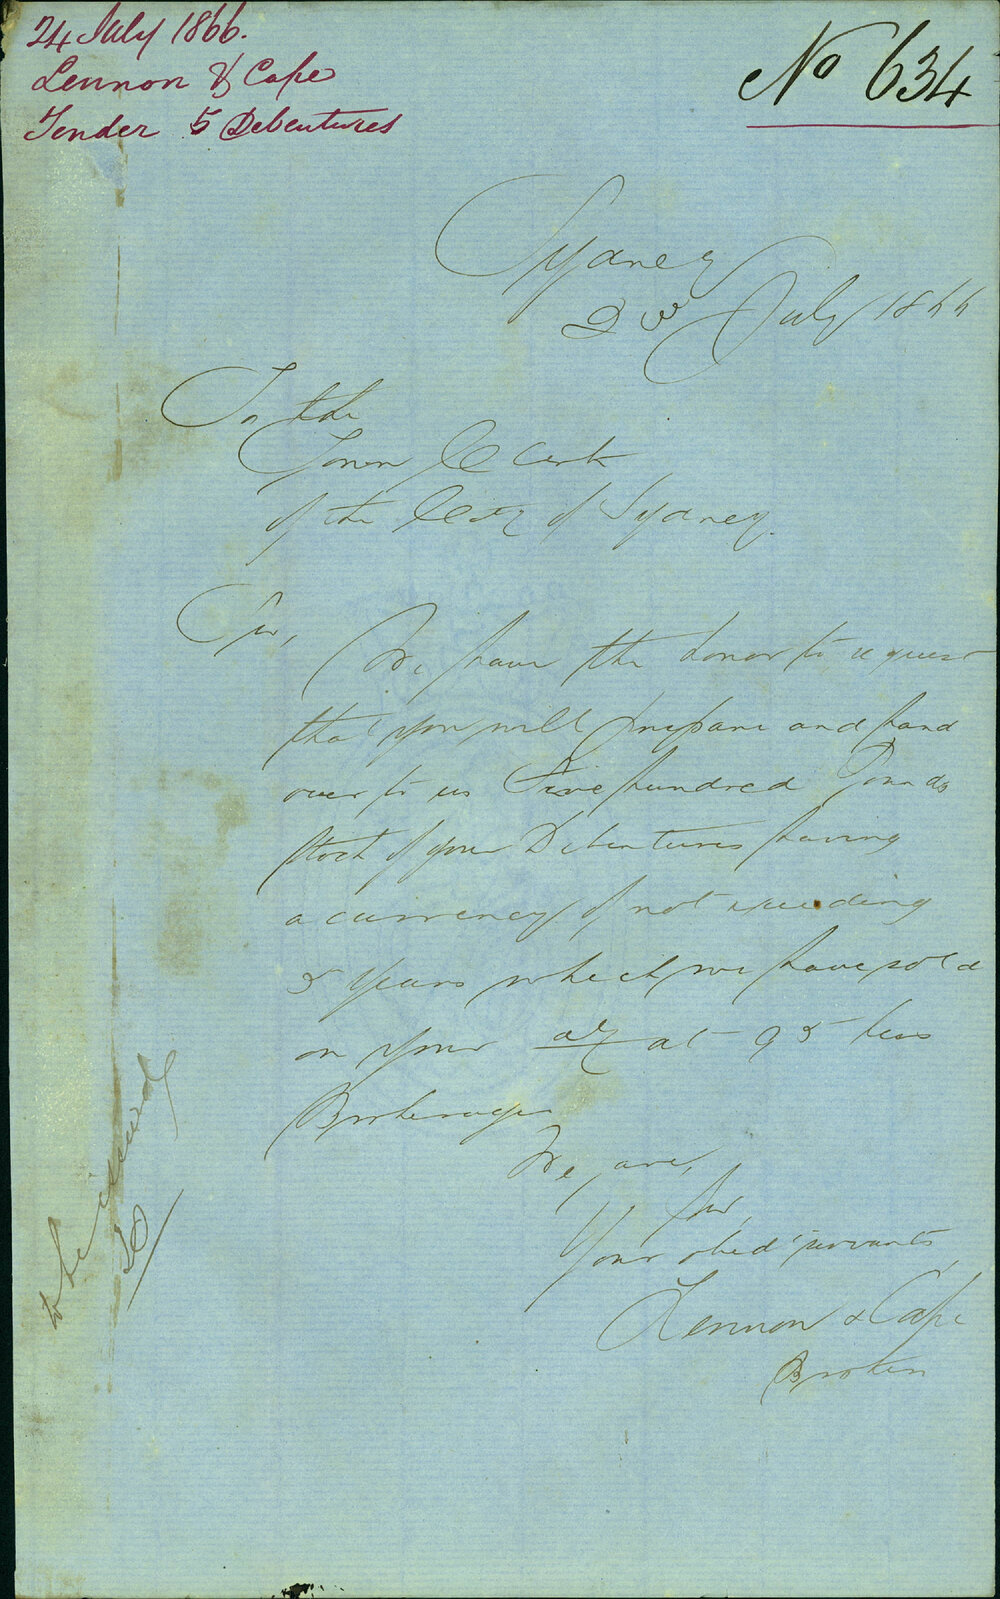 24 July 1866.
Lennon & Cape
Tender 5 Debentures
No 634
Sydney
July 1866
To the
Town Clerk
of the City of Sydney.
Sir,
We have the honor to request
that you will prepare and hand
over to us Five hundred Pounds
stock of your Debentures having
a currency of not exceeding
5 years which we have sold
on your a/c at 95 less
Brokerage
We are,
Sir,
Your obed servants
Lennon & Cape
Brokers
to be issued